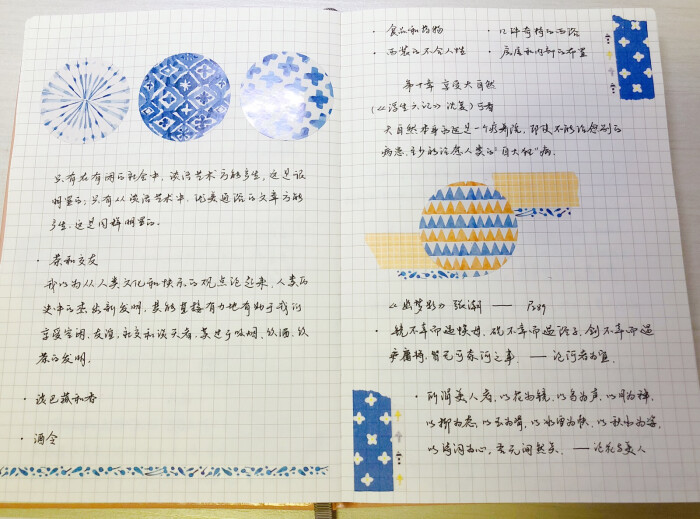 只有在有闲的社会中，谈话艺术方能产生，这是很
明显的；只有从谈话艺术中，优美通俗的文章方能
产生，这是同样明显的。
· 茶和交友
我以为从人类文化和快乐的观点论起来，人类历
史中的杰出新发明，其能直接有力地有助于我们
享受空闲、友谊、社交和谈天者，莫过于吸烟、饮酒、饮
茶的发明。
· 淡巴菰和香
· 酒令
· 食品和药物 · 几件奇特的西俗
· 西装的不合人性 · 房屋和内部的布置
第十章 享受大自然
(《浮生六记》沈复) 可看
大自然本身永远是一个疗养院，即使不能治愈别的
病患，至少能治愈人类的“自大狂”病。
《幽梦影》 张潮 ——
· 镜不幸而遇嫫母，砚不幸而遇俗子，剑不幸而遇
庸将，皆无可奈何之事。——
· 所谓美人者，以花为貌，以鸟为声，以月为神，
以柳为态，以玉为骨，以冰雪为肤，以秋水为姿，
以诗词为心，吾无间然矣。——论花与美人